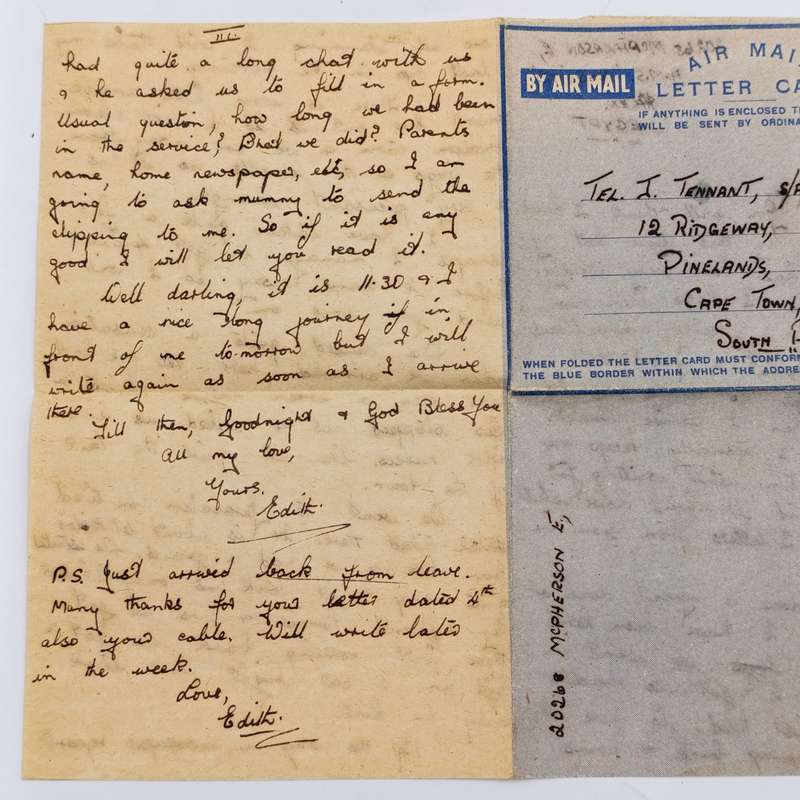 III.
had quite a long chat with us
& he asked us to fill in a form.
Usual question, how long we had been
in the service? What we did? Parents
name, home newspaper, etc, so I am
going to ask mummy to send the
clipping to me. So if it is any
good I will let you read it.
Well darling, it is 11.30 & I
have a nice long journey in
front of me to-morrow but I will
write again as soon as I arrive
there.
Till then, Goodnight & God Bless You
All my love,
Yours.
Edith.
P.S. Just arrived back from leave.
Many thanks for your letter dated 4th
also your cable. Will write later
in the week.
Love,
Edith.
AIR MAI
BY AIR MAIL
LETTER CA
IF ANYTHING IS ENCLOSED TH
WILL BE SENT BY ORDINA
TEL. J. TENNANT, S/A
12 RIDGEWAY,
PINELANDS,
CAPE TOWN,
SOUTH
WHEN FOLDED THE LETTER CARD MUST CONFORM
THE BLUE BORDER WITHIN WHICH THE ADDRE
20268 MCPHERSON E,